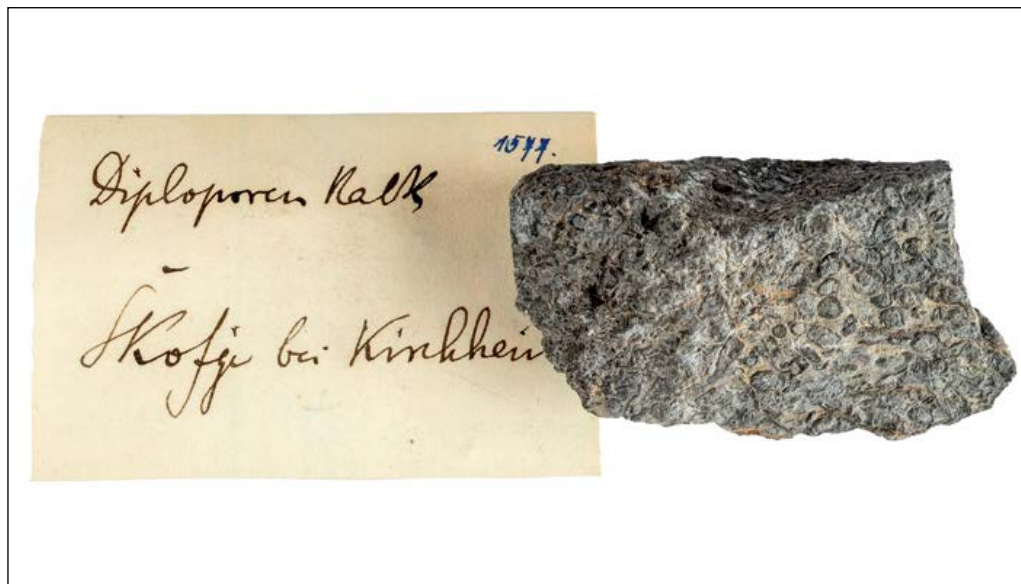 1577.
Diploporen Kalk
Škofje bei Kirchheim